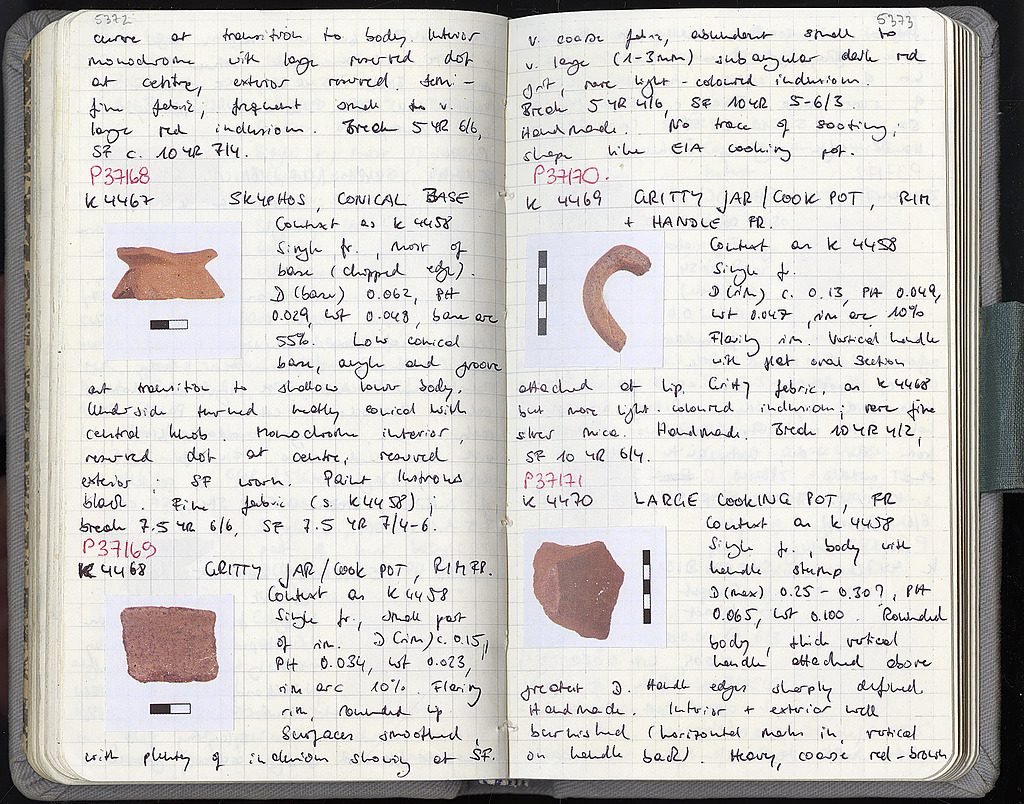 5372
curve at transition to body. Interior
monochrome with large reserved dot
at centre, exterior reserved. Semi-
fine fabric; frequent small to v.
large red inclusions. Break 5 YR 6/6,
SF c. 10 YR 7/4.
P37168
K 4467 SKYPHOS, CONICAL BASE
Context as K 4458
Single fr., most of
base (chopped edge).
D (base) 0.062, PH
0.029, WT 0.048, base arc
55%. Low conical
base, angle and groove
at transition to shallow lower body.
Underside turned neatly conical with
central knob. Monochrome interior,
reserved dot at centre, reserved
exterior; SF worn. Paint lustrous
black. Fine fabric (s. K4458);
break 7.5 YR 6/6, SF 7.5 YR 7/4-6.
P37169
K 4468 GRITTY JAR/COOK POT, RIM FR.
Context as K 4458
Single fr., small part
of rim. D (rim) c. 0.15,
PH 0.034, WT 0.023,
rim arc 10%. Flaring
rim, rounded lip.
Surfaces smoothed,
with plenty of inclusions showing at SF.
5373
v. coarse fabric, abundant small to
v. large (1-3mm) subangular dark red
grit, rare light-coloured inclusions.
Break 5 YR 4/6, SF 10YR 5-6/3.
Handmade. No trace of sooting;
shape like EIA cooking pot.
P37170.
K 4469 GRITTY JAR/COOK POT, RIM
+ HANDLE FR.
Context as K 4458
Single fr.
D (rim) c. 0.13, PH 0.049,
WT 0.047, rim arc 10%
Flaring rim. Vertical handle
with flat oval section
attached at lip. Gritty fabric, as K 4468
but more light-coloured inclusions; rare fine
silver mica. Handmade. Break 10YR 4/2,
SF 10 YR 6/4.
P37171
K 4470 LARGE COOKING POT, FR
Context as K 4458
Single fr., body with
handle stump
D (max) 0.25-0.30?, PH
0.065, WT 0.100. Rounded
body, thick vertical
handle attached above
greatest D. Handle edges sharply defined
Handmade. Interior + exterior well
burnished (horizontal marks in, vertical
on handle back). Heavy, coarse red-brown